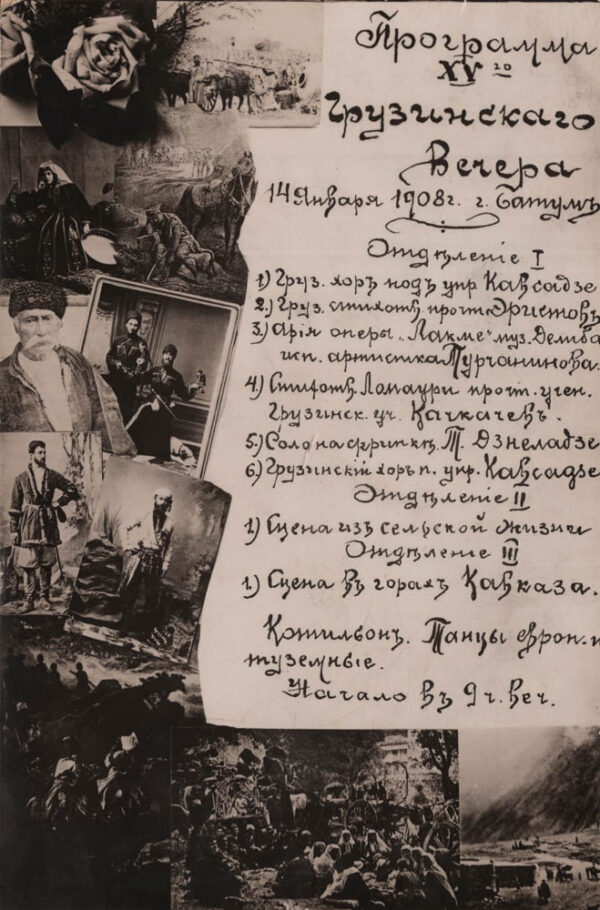 Программа
XVго
Грузинскаго
Вечера
14 Января 1908 г. г. Батумъ
Отдѣленіе I
1) Груз. хоръ подъ упр. Кавсадзе
2.) Груз. стихотв. прочт. Эристовъ
3.) Арія оперы „Лакме" муз. Делиба
исп. артистка Турчанинова.
4.) Стихотв. Ломаури прочт. учен.
Грузинск. уч. Качкачевъ.
5.) Соло на скрипкѣ Т. Дзнеладзе
6.) Грузинскій хоръ п. упр. Кавсадзе
Отдѣленіе II
1.) Сцена изъ сельской жизни
Отдѣленіе III
1.) Сцена въ горахъ Кавказа.
Котильонъ. Танцы европ. и
туземные.
Начало въ 9 ч. веч.